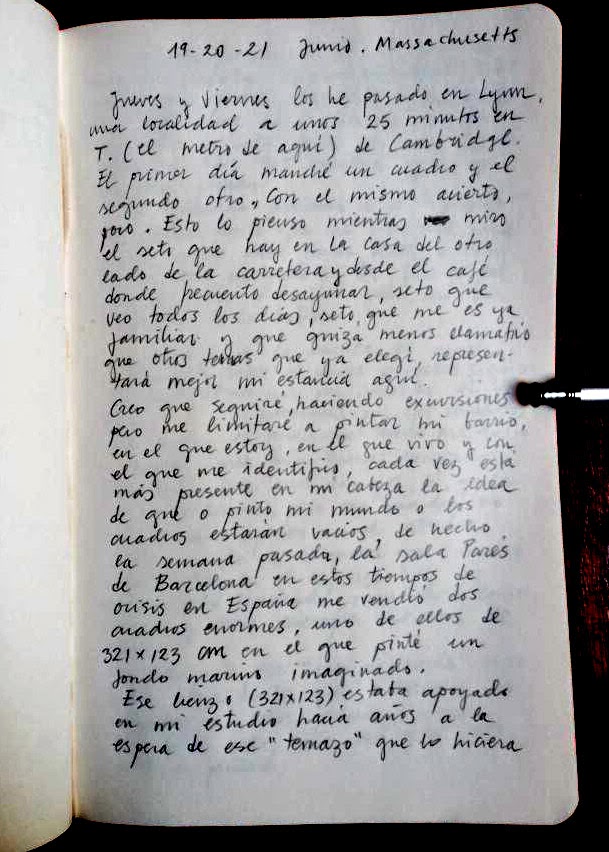 19-20-21 Junio. Massachusetts
Jueves y Viernes los he pasado en Lynn,
una localidad a unos 25 minutos en
T. (el metro de aquí) de Cambridge.
El primer día manché un cuadro y el
segundo otro. Con el mismo acierto,
poco. Esto lo pienso mientras miro
el seto que hay en la casa del otro
lado de la carretera y desde el café
donde frecuento desayunar, seto que
veo todos los días, seto, que me es ya
familiar y que quizá menos llamativo
que otros temas que ya elegí, represen-
tará mejor mi estancia aquí.
Creo que seguiré, haciendo excursiones
pero me limitaré a pintar mi barrio,
en el que estoy, en el que vivo y con
el que me identifico, cada vez está
más presente en mi cabeza la idea
de que o pinto mi mundo o los
cuadros estarán vacíos, de hecho
la semana pasada, la sala Parés
de Barcelona en estos tiempos de
crisis en España me vendió dos
cuadros enormes, uno de ellos de
321x123 cm en el que pinté un
fondo marino imaginado.
Ese lienzo (321x123) estaba apoyado
en mi estudio hacía años a la
espera de ese "temazo" que lo hiciera